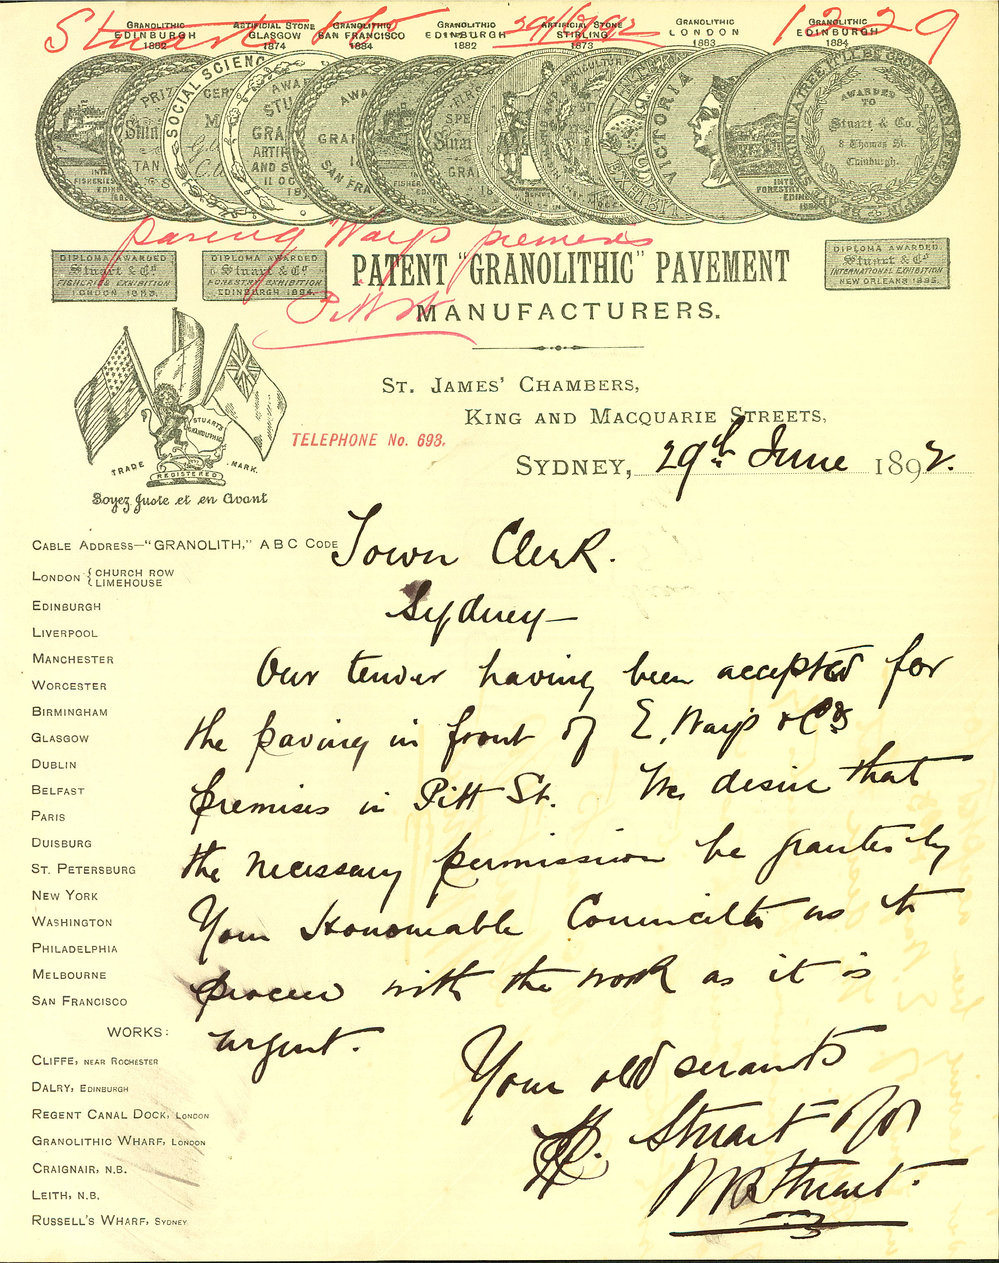 GRANOLITHIC EDINBURGH 1882
ARTIFICIAL STONE GLASGOW 1874
GRANOLITHIC SAN FRANCISCO 1884
GRANOLITHIC EDINBURGH 1882
ARTIFICIAL STONE STIRLING 1873
GRANOLITHIC LONDON 1883
GRANOLITHIC EDINBURGH 1884
1229
SOCIAL SCIENC
VICTORIA
AWARDED
TO
Stuart & Co.
8 Thomas St.
Edinburgh.
paving Ways premises
Pitt St
DIPLOMA AWARDED
Stuart & Co
FISHERIES EXHIBITION
LONDON 1883.
DIPLOMA AWARDED
Stuart & Co
FORESTRY EXHIBITION
EDINBURGH 1884.
DIPLOMA AWARDED
Stuart & Co
INTERNATIONAL EXHIBITION
NEW ORLEANS 1885.
PATENT "GRANOLITHIC" PAVEMENT
MANUFACTURERS.
ST. JAMES' CHAMBERS,
KING AND MACQUARIE STREETS,
TELEPHONE No. 693.
SYDNEY, 29th June 1892.
STUART'S GRANOLITHIC
TRADE MARK.
REGISTERED
Soyez Juste et en Avant
CABLE ADDRESS—"GRANOLITH," A B C CODE
LONDON { CHURCH ROW
LIMEHOUSE
EDINBURGH
LIVERPOOL
MANCHESTER
WORCESTER
BIRMINGHAM
GLASGOW
DUBLIN
BELFAST
PARIS
DUISBURG
ST. PETERSBURG
NEW YORK
WASHINGTON
PHILADELPHIA
MELBOURNE
SAN FRANCISCO
WORKS:
CLIFFE, NEAR ROCHESTER
DALRY, EDINBURGH
REGENT CANAL DOCK, LONDON
GRANOLITHIC WHARF, LONDON
CRAIGNAIR, N.B.
LEITH, N.B.
RUSSELL'S WHARF, SYDNEY
Town Clerk.
Sydney—
Our tender having been accepted for
the paving in front of E. Ways & Co's
premises in Pitt St. We desire that
the necessary permission be granted by
Your Honourable Council us to
proceed with the work as it is
urgent.
Your obd servants
Stuart
Stuart